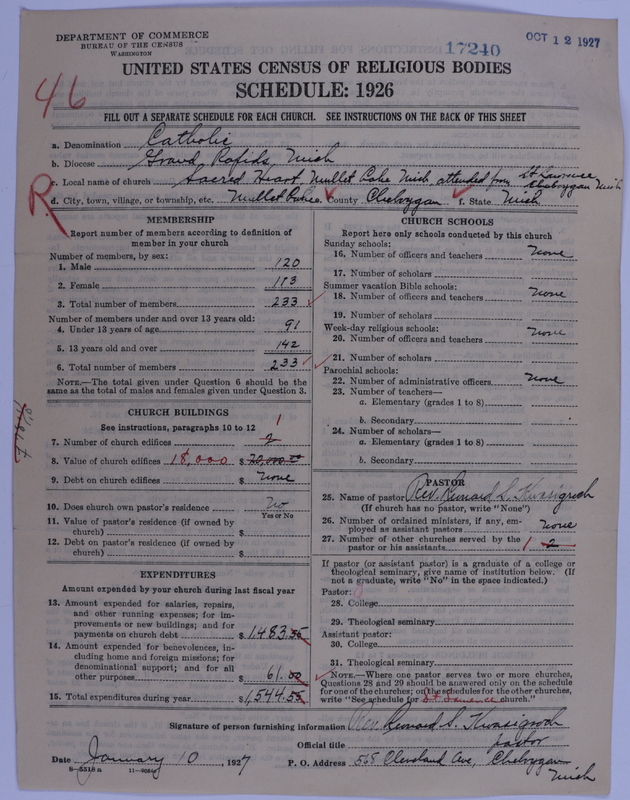 DEPARTMENT OF COMMERCE
BUREAU OF THE CENSUS
WASHINGTON
17240
OCT 12 1927
UNITED STATES CENSUS OF RELIGIOUS BODIES
SCHEDULE: 1926
46
FILL OUT A SEPARATE SCHEDULE FOR EACH CHURCH. SEE INSTRUCTIONS ON THE BACK OF THIS SHEET
a. Denomination Catholic
b. Diocese Grand Rapids, Mich
c. Local name of church Sacred Heart Mullet Lake Mich. attended from St Lawrence Cheboygan Mich
R
d. City, town, village, or township, etc. Mullet Lake County Cheboygan f. State Mich.
MEMBERSHIP
Report number of members according to definition of
member in your church
Number of members, by sex:
1. Male 120
2. Female 113
3. Total number of members 233
Number of members under and over 13 years old:
4. Under 13 years of age 91
5. 13 years old and over 142
6. Total number of members 233
NOTE.—The total given under Question 6 should be the
same as the total of males and females given under Question 3.
CHURCH BUILDINGS
See instructions, paragraphs 10 to 12
7. Number of church edifices 2 1
8. Value of church edifices 18,000 $ 20,000.00
9. Debt on church edifices $ none
10. Does church own pastor's residence No
Yes or No
11. Value of pastor's residence (if owned by
church) $
12. Debt on pastor's residence (if owned by
church) $
EXPENDITURES
Amount expended by your church during last fiscal year
13. Amount expended for salaries, repairs,
and other running expenses; for im-
provements or new buildings; and for
payments on church debt $ 1,483.55
14. Amount expended for benevolences, in-
cluding home and foreign missions; for
denominational support; and for all
other purposes $ 61.00
15. Total expenditures during year $ 1,544.55
CHURCH SCHOOLS
Report here only schools conducted by this church
Sunday schools:
16. Number of officers and teachers None
17. Number of scholars
Summer vacation Bible schools:
18. Number of officers and teachers None
19. Number of scholars
Week-day religious schools:
20. Number of officers and teachers None
21. Number of scholars
Parochial schools:
22. Number of administrative officers None
23. Number of teachers—
a. Elementary (grades 1 to 8)
b. Secondary
24. Number of scholars—
a. Elementary (grades 1 to 8)
b. Secondary
PASTOR
25. Name of pastor Rev.
(If church has no pastor, write "None")
26. Number of ordained ministers, if any, em-
ployed as assistant pastors none
27. Number of other churches served by the
pastor or his assistants 1 2
If pastor (or assistant pastor) is a graduate of a college or
theological seminary, give name of institution below. (If
not a graduate, write "No" in the space indicated.)
Pastor:
28. College
29. Theological seminary
Assistant pastor:
30. College
31. Theological seminary
NOTE.—Where one pastor serves two or more churches,
Questions 28 and 29 should be answered only on the schedule
for one of the churches; on the schedules for the other churches,
write "See schedule for St Lawrence church."
Signature of person furnishing information Rev.
Official title pastor
Date January 10, 1927 P. O. Address 568 Cleveland Ave, Cheboygan Mich
8-5518 a